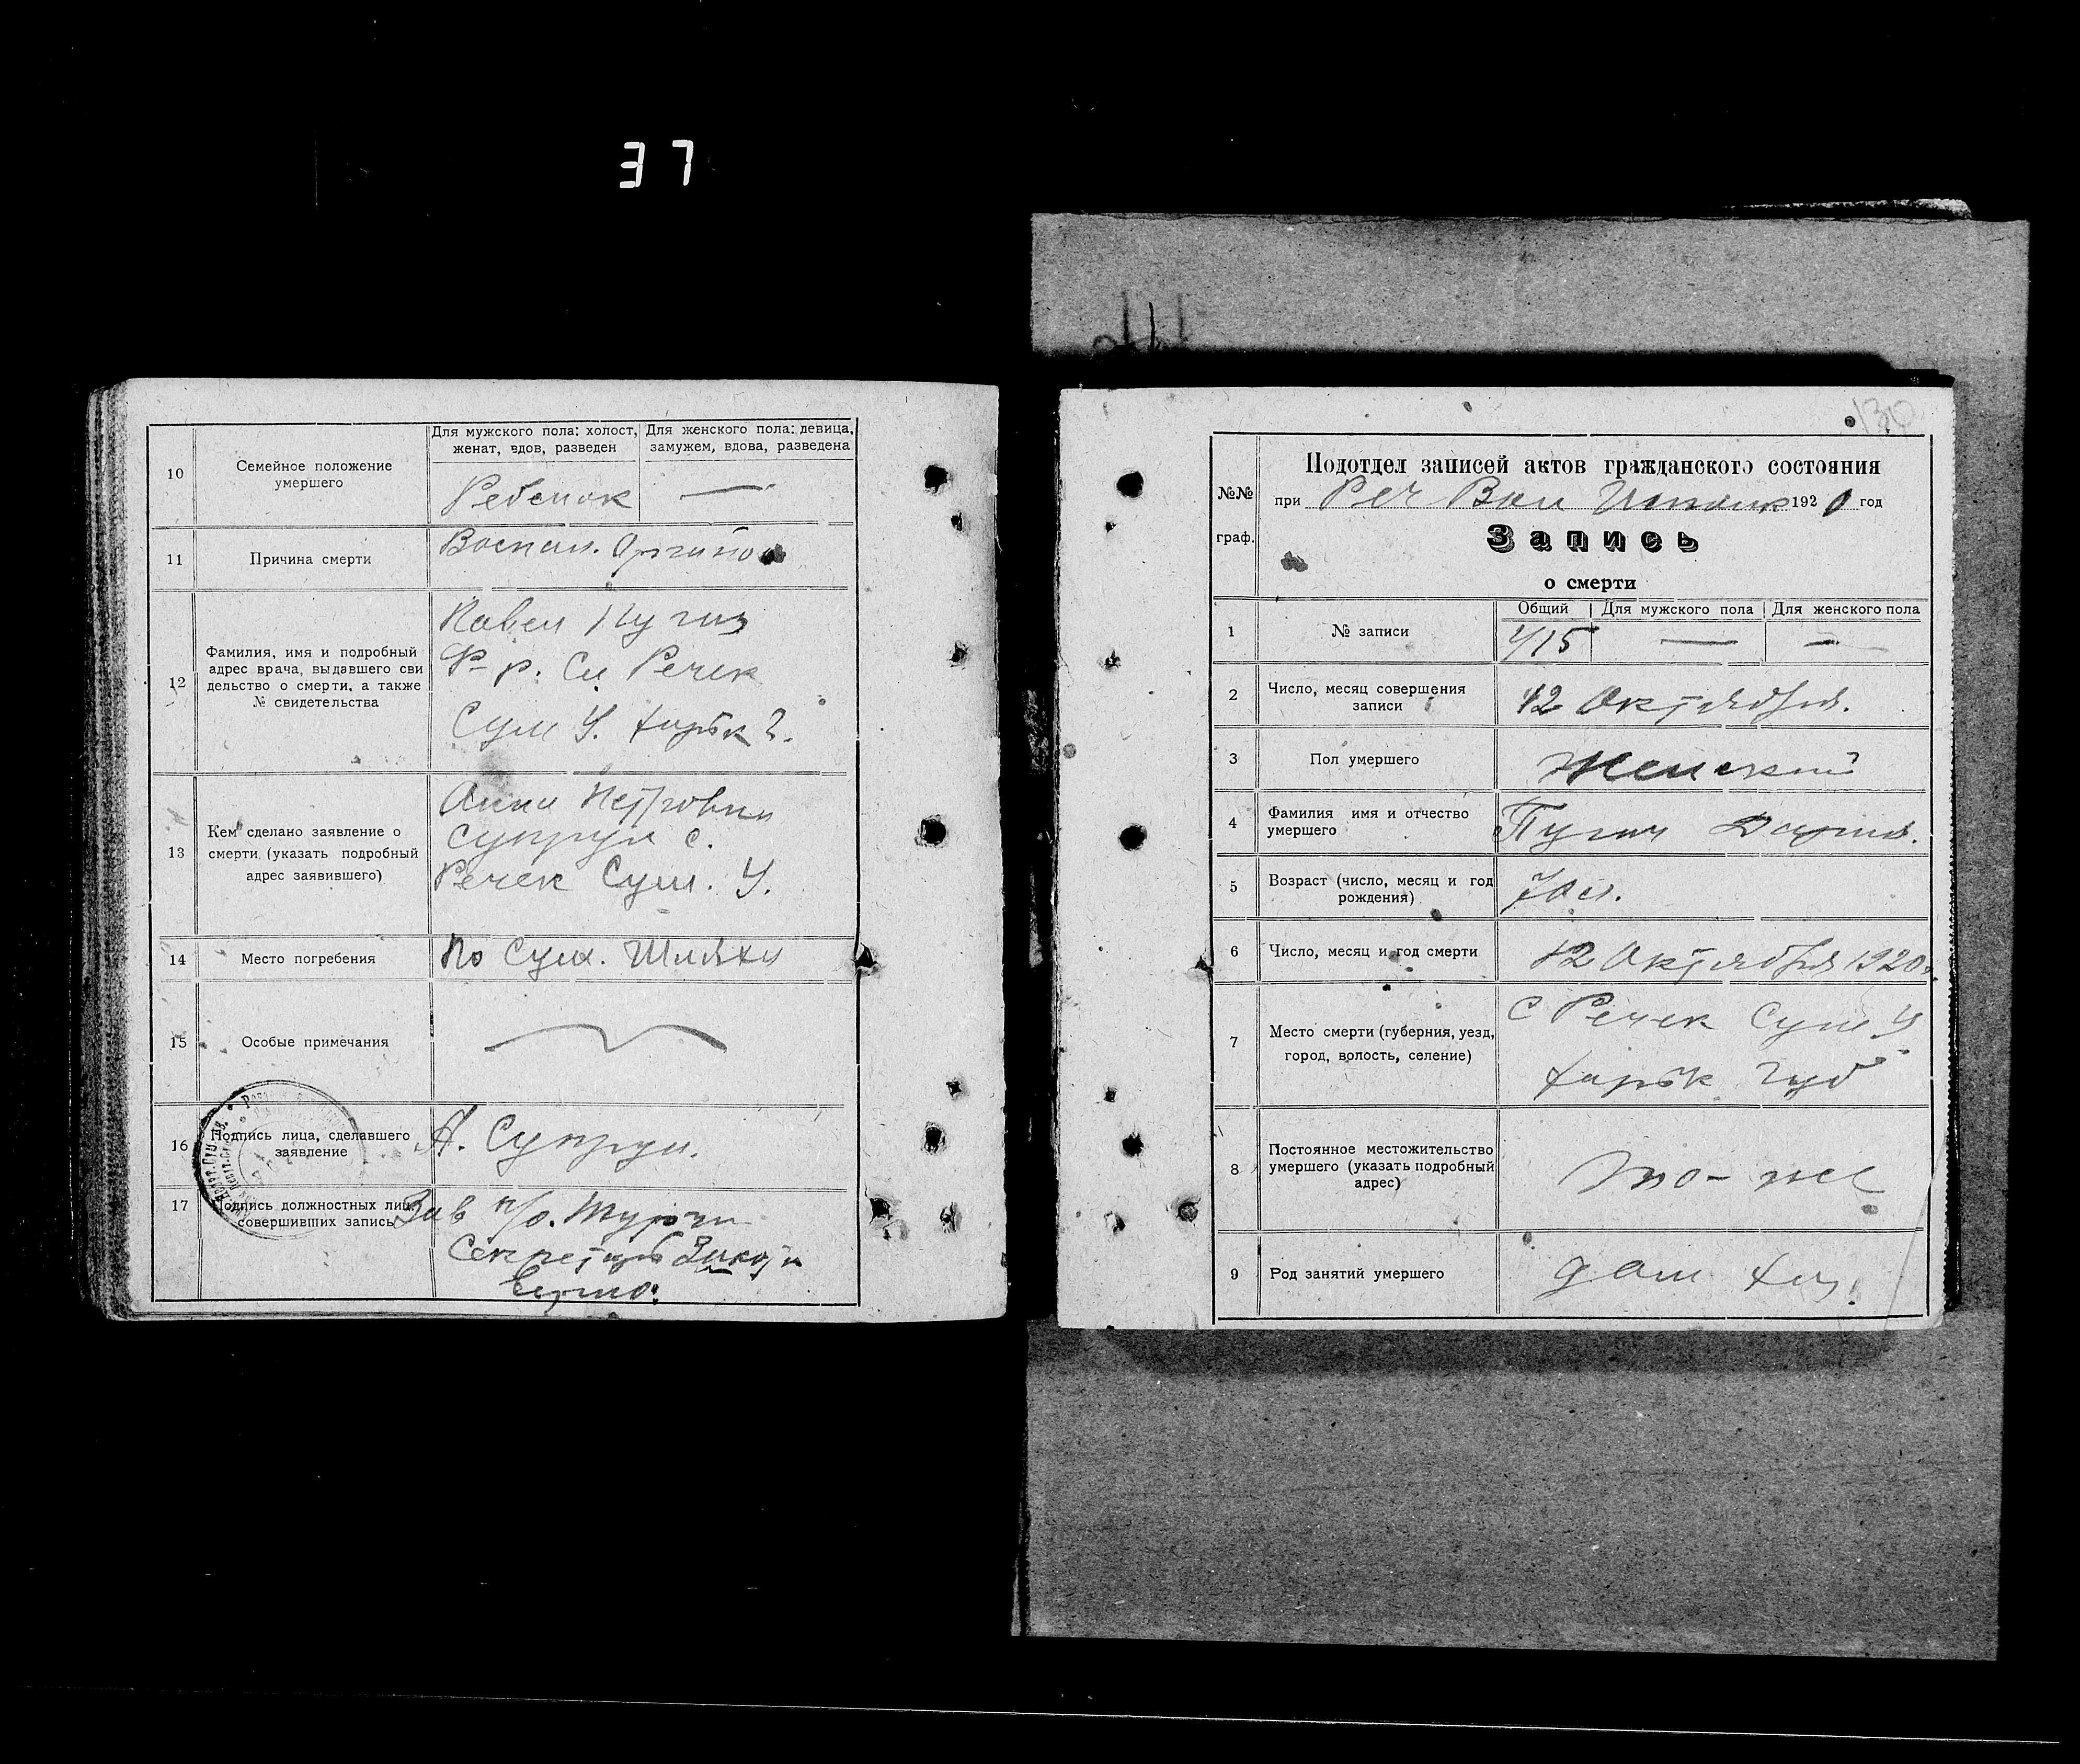 37
10
Семейное положение
умершего
Для мужского пола: холост,
женат, вдов, разведен
Для женского пола: девица,
замужем, вдова, разведена
Ребенок —
11
Причина смерти
Воспал.
12
Фамилия, имя и подробный
адрес врача, выдавшего сви
дельство о смерти, а также
№ свидетельства
Павел Пугач
Ф-р. Сл Речек
Сум У. Харьк г.
13
Кем сделано заявление о
смерти (указать подробный
адрес заявившего)
Анна Петровна
Супрун с.
Речек Сум. У.
14
Место погребения
По Сум. Шляху
15
Особые примечания
16
Подпись лица, сделавшего
заявление
А. Супрун.
17
Подпись должностных лиц,
совершивших запись
Зав п/о.
Секретарь
130
№№
граф.
Подотдел записей актов гражданского состояния
при Реч Вол Исполк 1920 год
Запись
о смерти
Общий
Для мужского пола
Для женского пола
1
№ записи
415 — —
2
Число, месяц совершения
записи
12 Октября.
3
Пол умершего
Женский
4
Фамилия имя и отчество
умершего
Пугач Дария.
5
Возраст (число, месяц и год
рождения)
70 л.
6
Число, месяц и год смерти
12 Октября 1920
7
Место смерти (губерния, уезд,
город, волость, селение)
С Речек Сум У
Харьк Губ
8
Постоянное местожительство
умершего (указать подробный
адрес)
то-же
9
Род занятий умершего
дом хоз.